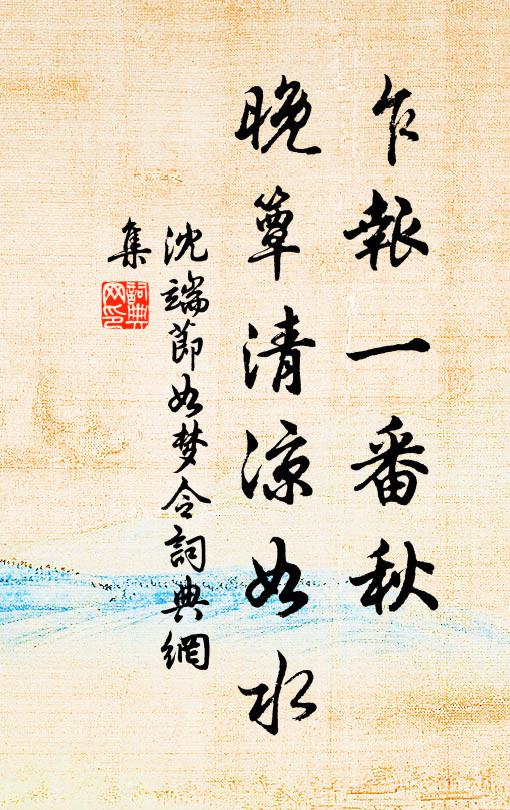 乍報一番秋
晚簟清涼如水
沈端節如梦令詞典網
集
詞典
网印